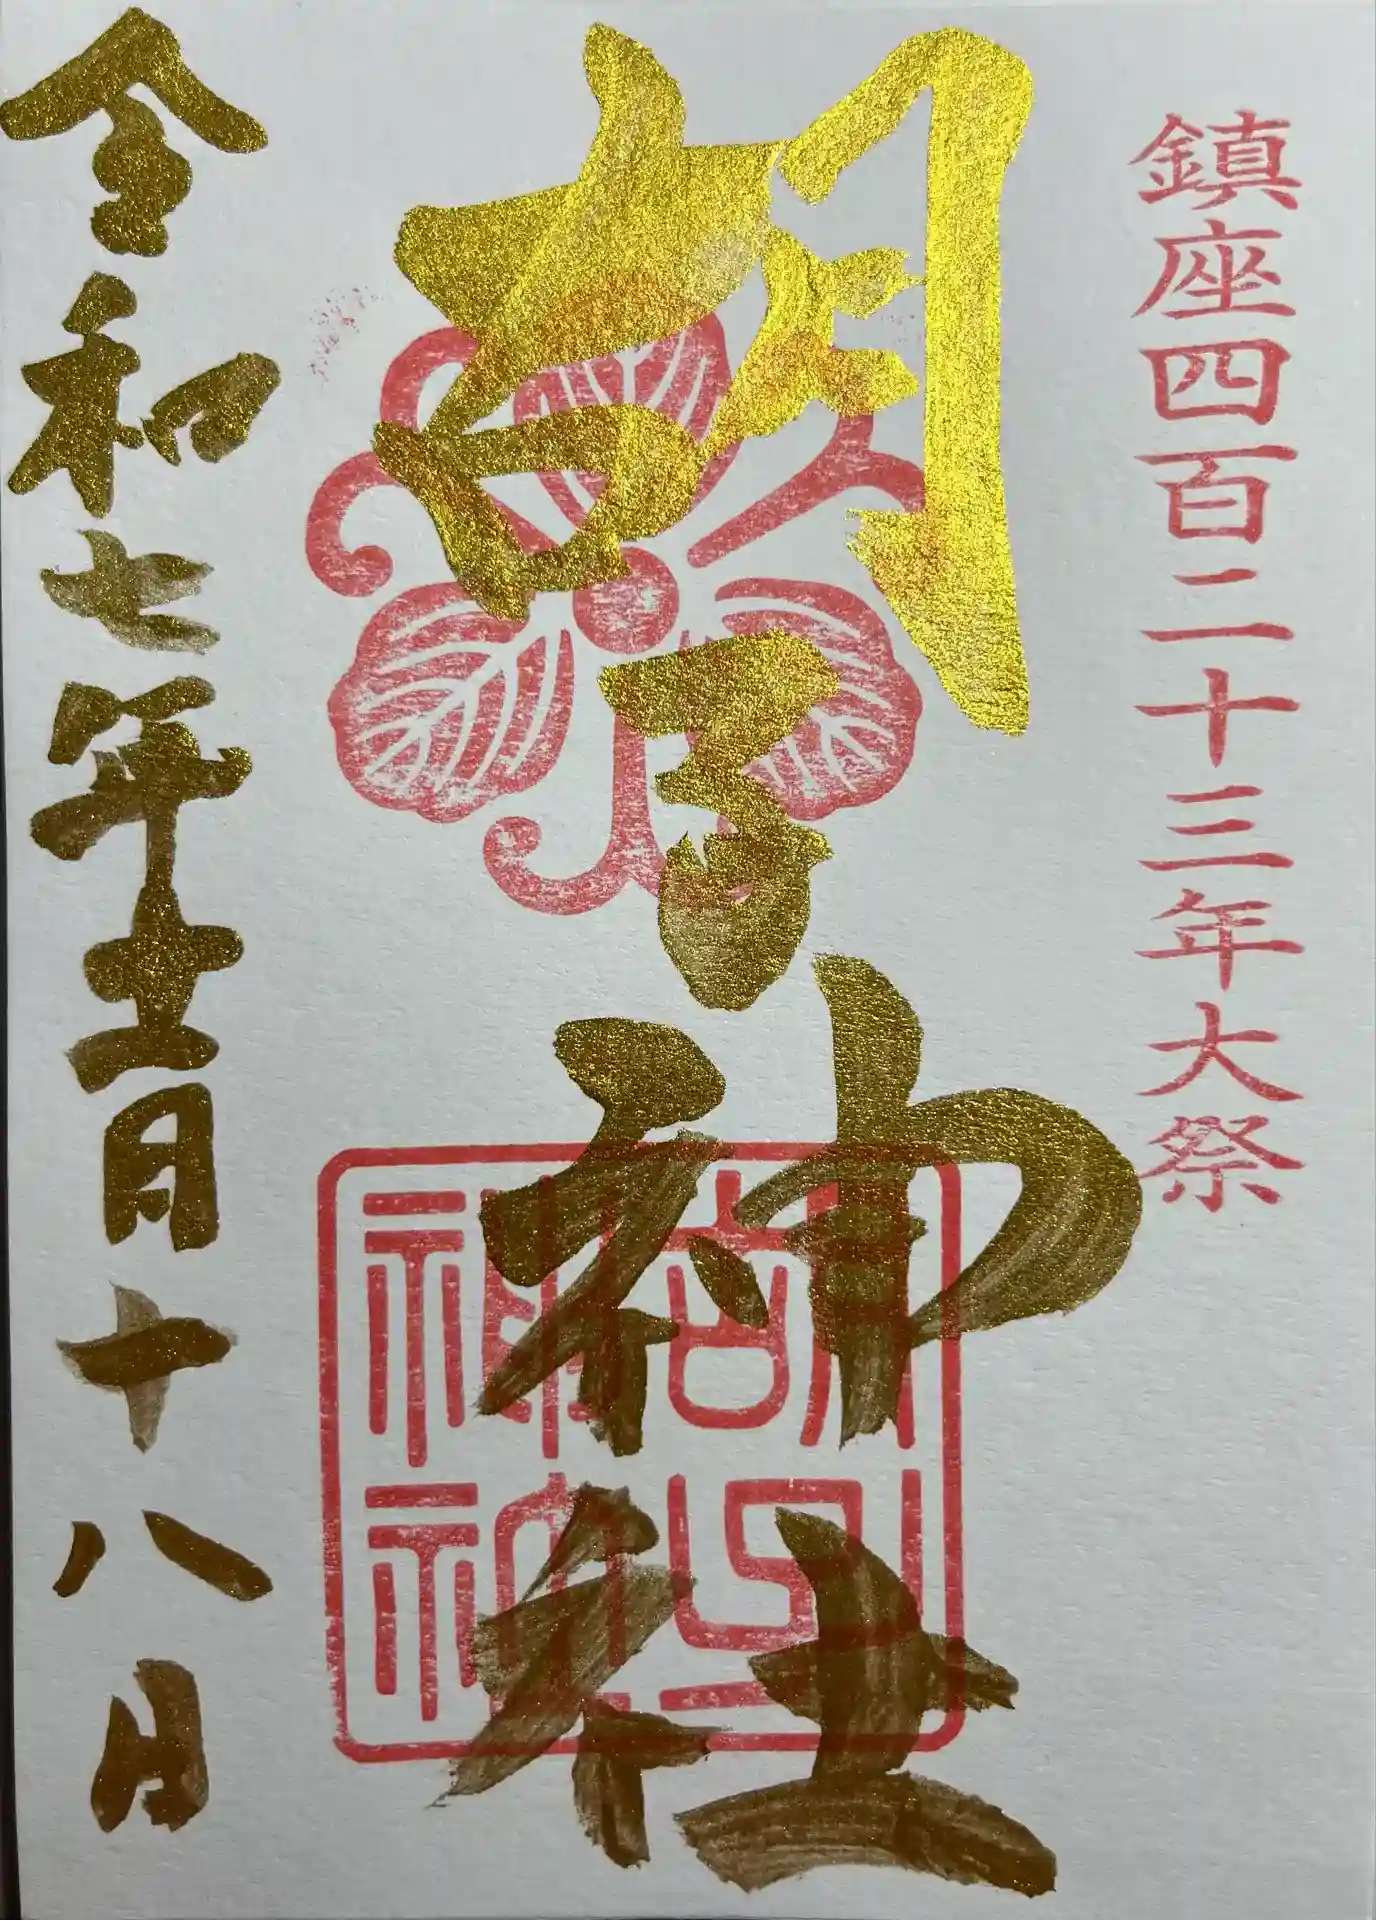 鎮座四百二十三年大祭
胡子神社
令和七年十一月十八日